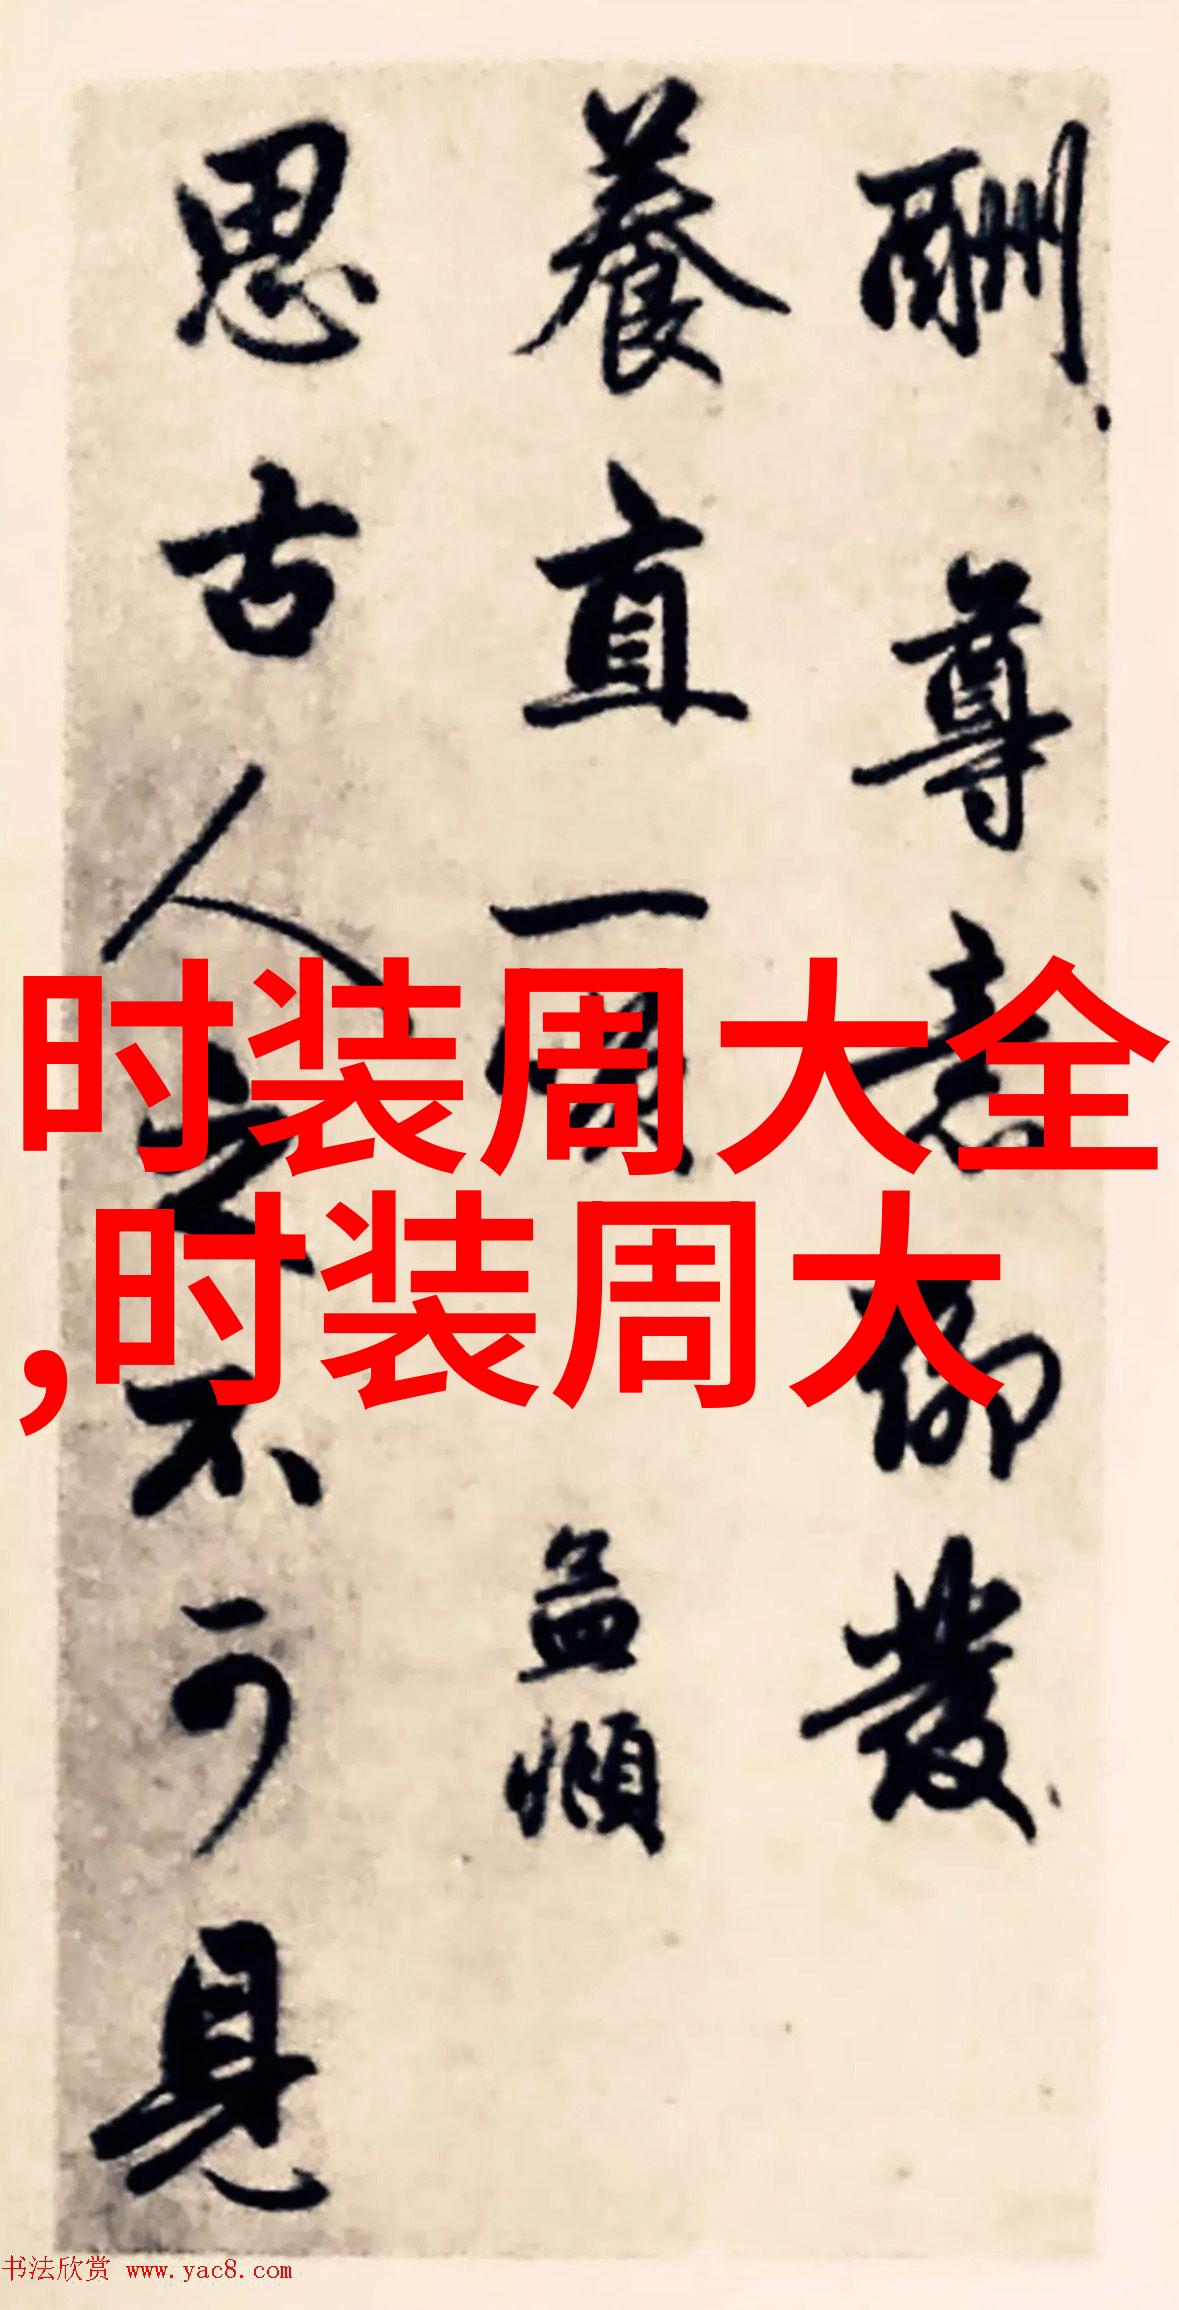 酬尊意聊發
養直一笑孟頫
思古人之不可見
时装周大全
,时装周大
书法欣赏 www.yac8.com